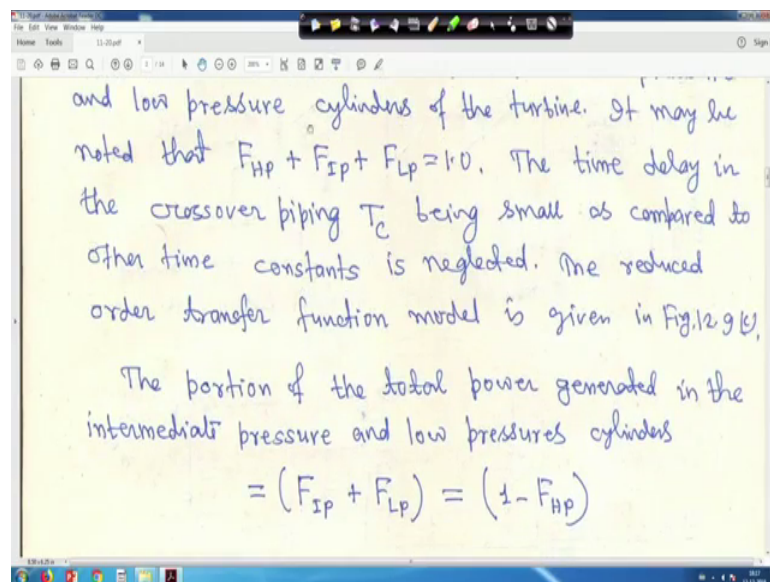 11-20.pdf - Adobe Acrobat Reader DC
File Edit View Window Help
Home Tools 11-20.pdf × Sign
and low pressure cylinders of the turbine. It may be
noted that F_HP + F_IP + F_LP = 1.0. The time delay in
the crossover piping T_c being small as compared to
other time constants is neglected. The reduced
order transfer function model is given in Fig.12.9(c).
The portion of the total power generated in the
intermediate pressure and low pressures cylinders
= (F_IP + F_LP) = (1 - F_HP)